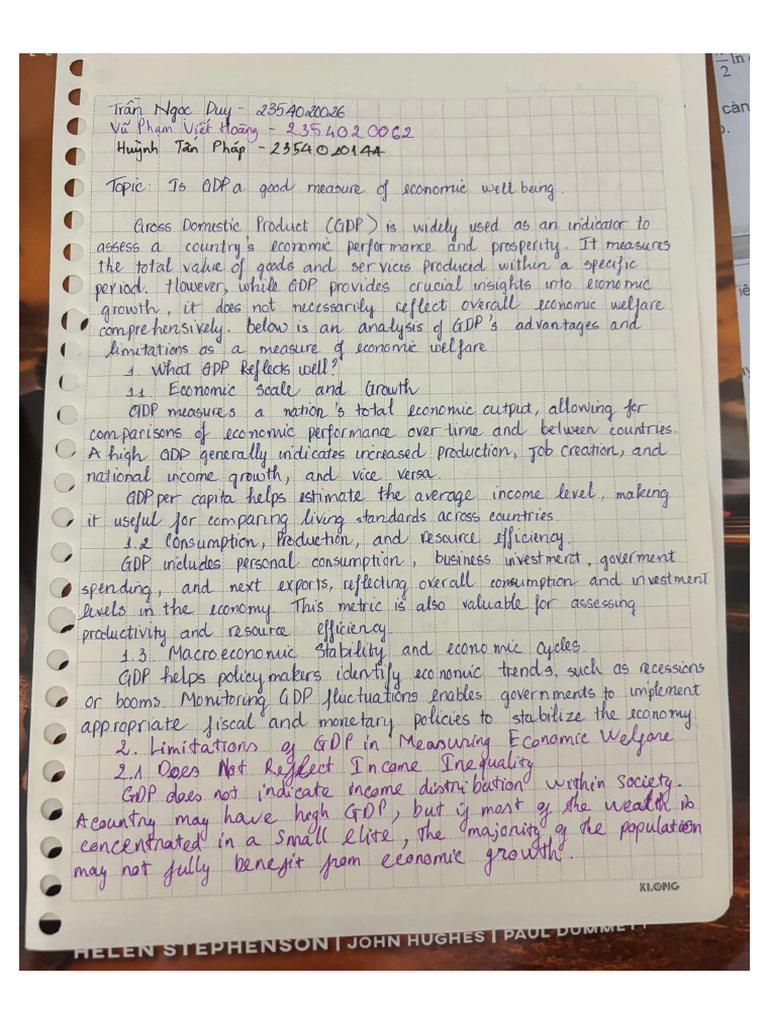 Trần Ngọc Duy - 2354020026
Vũ Phạm Việt Hoàng - 2354020062
Huỳnh Tấn Pháp - 2354020144
Topic: Is GDP a good measure of economic well being.
Gross Domestic Product (GDP) is widely used as an indicator to
assess a country's economic performance and prosperity. It measures
the total value of goods and services produced within a specific
period. However, while GDP provides crucial insights into economic
growth, it does not necessarily reflect overall economic welfare
comprehensively. below is an analysis of GDP's advantages and
limitations as a measure of economic welfare
1. What GDP Reflects well?
1.1 Economic Scale and Growth
GDP measures a nation's total economic output, allowing for
comparisons of economic performance over time and between countries.
A high GDP generally indicates increased production, job creation, and
national income growth, and vice versa.
GDP per capita helps estimate the average income level, making
it useful for comparing living standards across countries.
1.2 Consumption, Production, and resource efficiency.
GDP includes personal consumption, business investment, goverment
spending, and next exports, reflecting overall consumption and investment
levels in the economy. This metric is also valuable for assessing
productivity and resource efficiency.
1.3 Macroeconomic Stability and economic cycles.
GDP helps policymakers identify economic trends, such as recessions
or booms. Monitoring GDP fluctuations enables governments to implement
appropriate fiscal and monetary policies to stabilize the economy
2. Limitations of GDP in Measuring Economic Welfare
2.1 Does Not Reflect Income Inequality
GDP does not indicate income distribution within society.
A country may have high GDP, but if most of the wealth is
concentrated in a small elite, the majority of the population
may not fully benefit from economic growth.
KLONG
HELEN STEPHENSON | JOHN HUGHES | PAUL DUMMETT